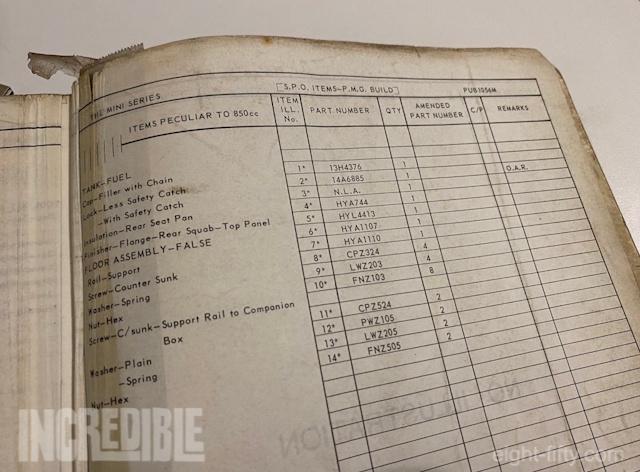 THE MINI SERIES
S.P.O. ITEMS–P.M.G. BUILD
PUB1056M
ITEMS PECULIAR TO 850cc
ITEM ILL. No.
PART NUMBER
QTY
AMENDED PART NUMBER
C/P
REMARKS
TANK–FUEL
Cap–Filler with Chain
Lock–Less Safety Catch
–With Safety Catch
Insulation–Rear Seat Pan
Finisher–Flange–Rear Squab–Top Panel
FLOOR ASSEMBLY–FALSE
Rail–Support
Screw–Counter Sunk
Washer–Spring
Nut–Hex
Screw–C/sunk–Support Rail to Companion
Box
Washer–Plain
–Spring
Nut–Hex
1* 13H4376 1
2* 14A6885 1
3* N.L.A. 1
4* HYA744 1
5* HYL4413 1
6* HYA1107 1
7* HYA1110 4
8* CPZ324 4
9* LWZ203 8
10* FNZ103
11* CPZ524 2
12* PWZ105 2
13* LWZ205 2
14* FNZ505 2
O.A.R.
NO ILLUSTRATION
INCREDIBLE
eight-fifty.com